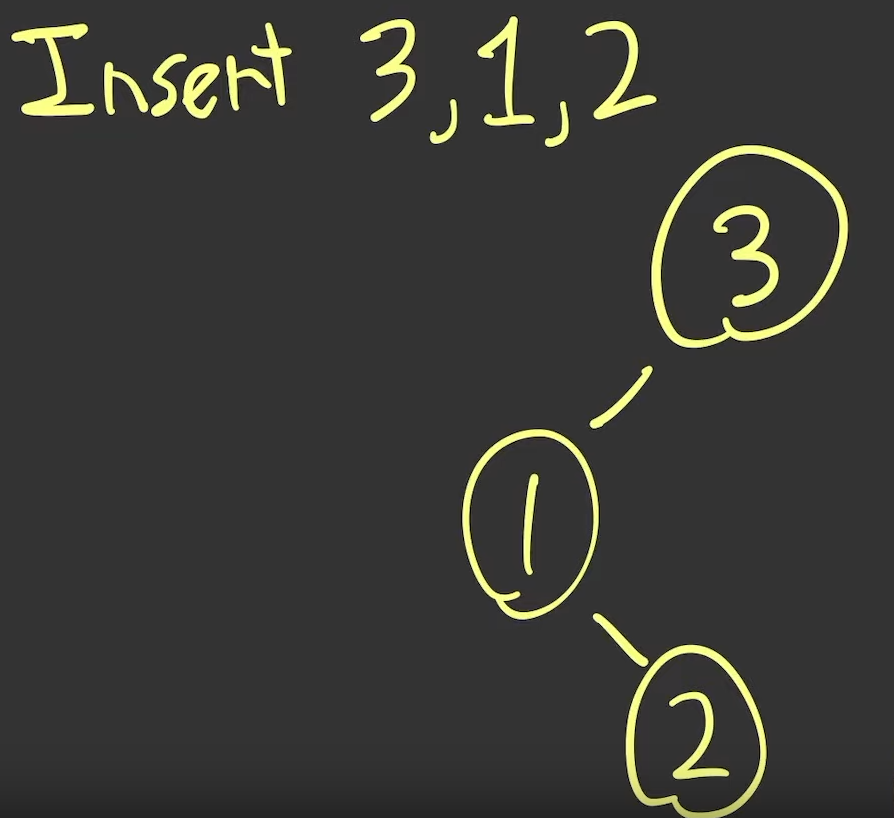 Insert 3,1,2
3
1
2